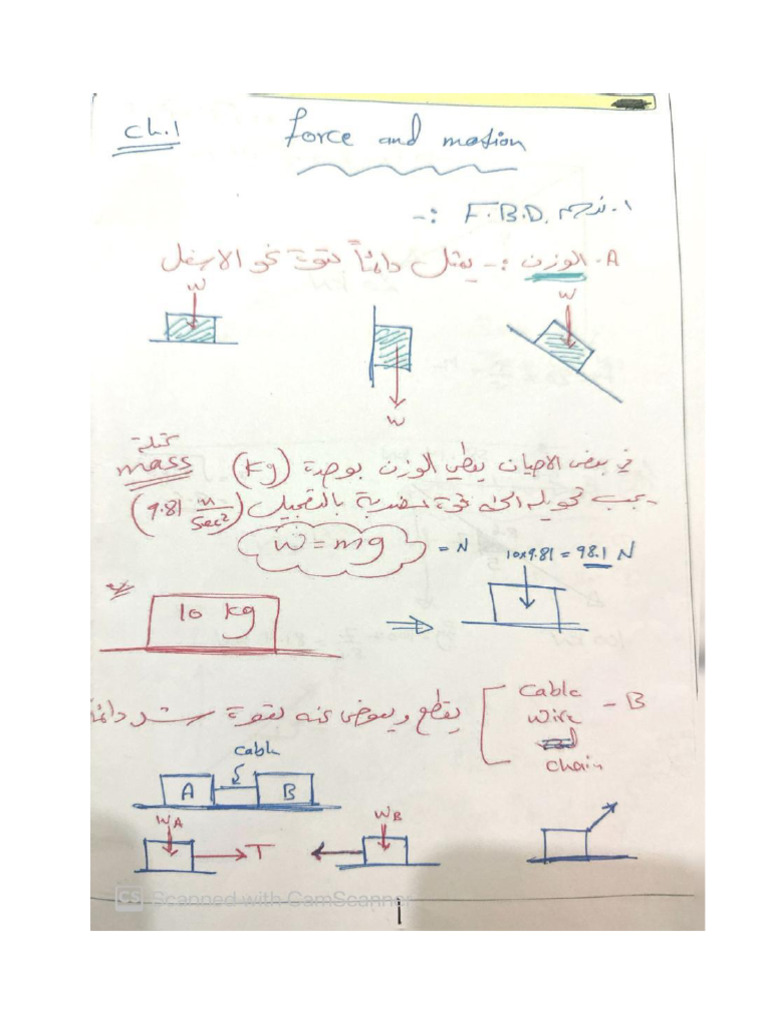 ch.1 force and motion
١- نرسم F.B.D. :-
A- الوزن :- يمثل دائماً بقوة نحو الاسفل
w
w
w
كتلة
mass
في بعض الاحيان يعطي الوزن بوحدة (kg)
يجب تحويله الى قوة بالتعجيل (9.81 m/sec²)
w = mg = N
10x9.81 = 98.1 N
10 kg
B - cable
wire
chain
يقطع ويعوض عنه بقوة شد دائماً
cable
A B
WA T
WB
CS Scanned with CamScanner
1